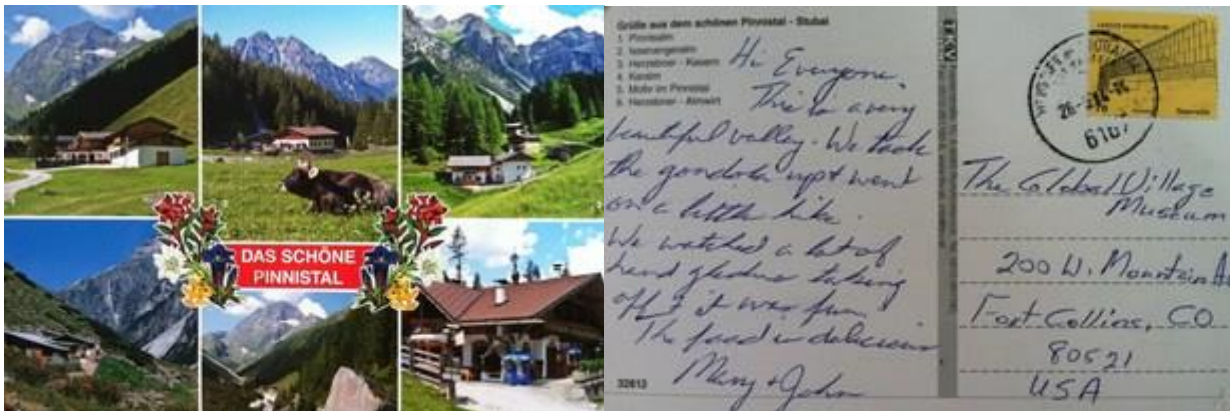 DAS SCHÖNE
PINNISTAL
Grüße aus dem schönen Pinnistal - Stubai
1 Pinnisalm
2 Issenangeralm
3 Herzebner - Kasern
4 Karalm
5 Motiv im Pinnistal
6 Herzebner - Almwirt
Hi Everyone,
This is a very
beautiful valley. We took
the gondola up + went
on a little hike.
We watched a lot of
hand gliders taking
off + it was fun!
The food is delicious
Mary + John
32612
6167
The Global Village
Museum
200 W. Mountain
Fort Collins, CO
80521
USA